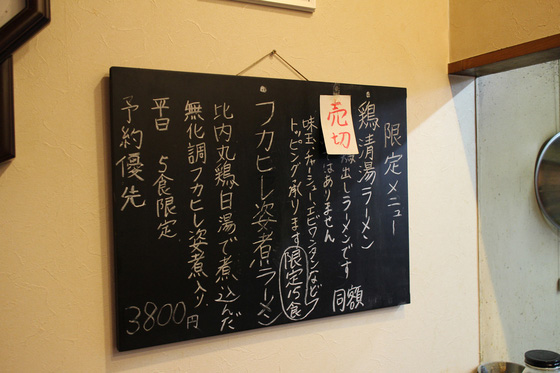 限定メニュー
売切
鶏清湯ラーメン
出しラーメンです
はありません 同額
味玉、チャーシュー、エビワンタンなど
トッピング承ります 限定15食
フカヒレ姿煮ラーメン
比内丸鶏白湯で煮込んだ
無化調フカヒレ姿煮入り
平日 5食限定 3800円
予約優先